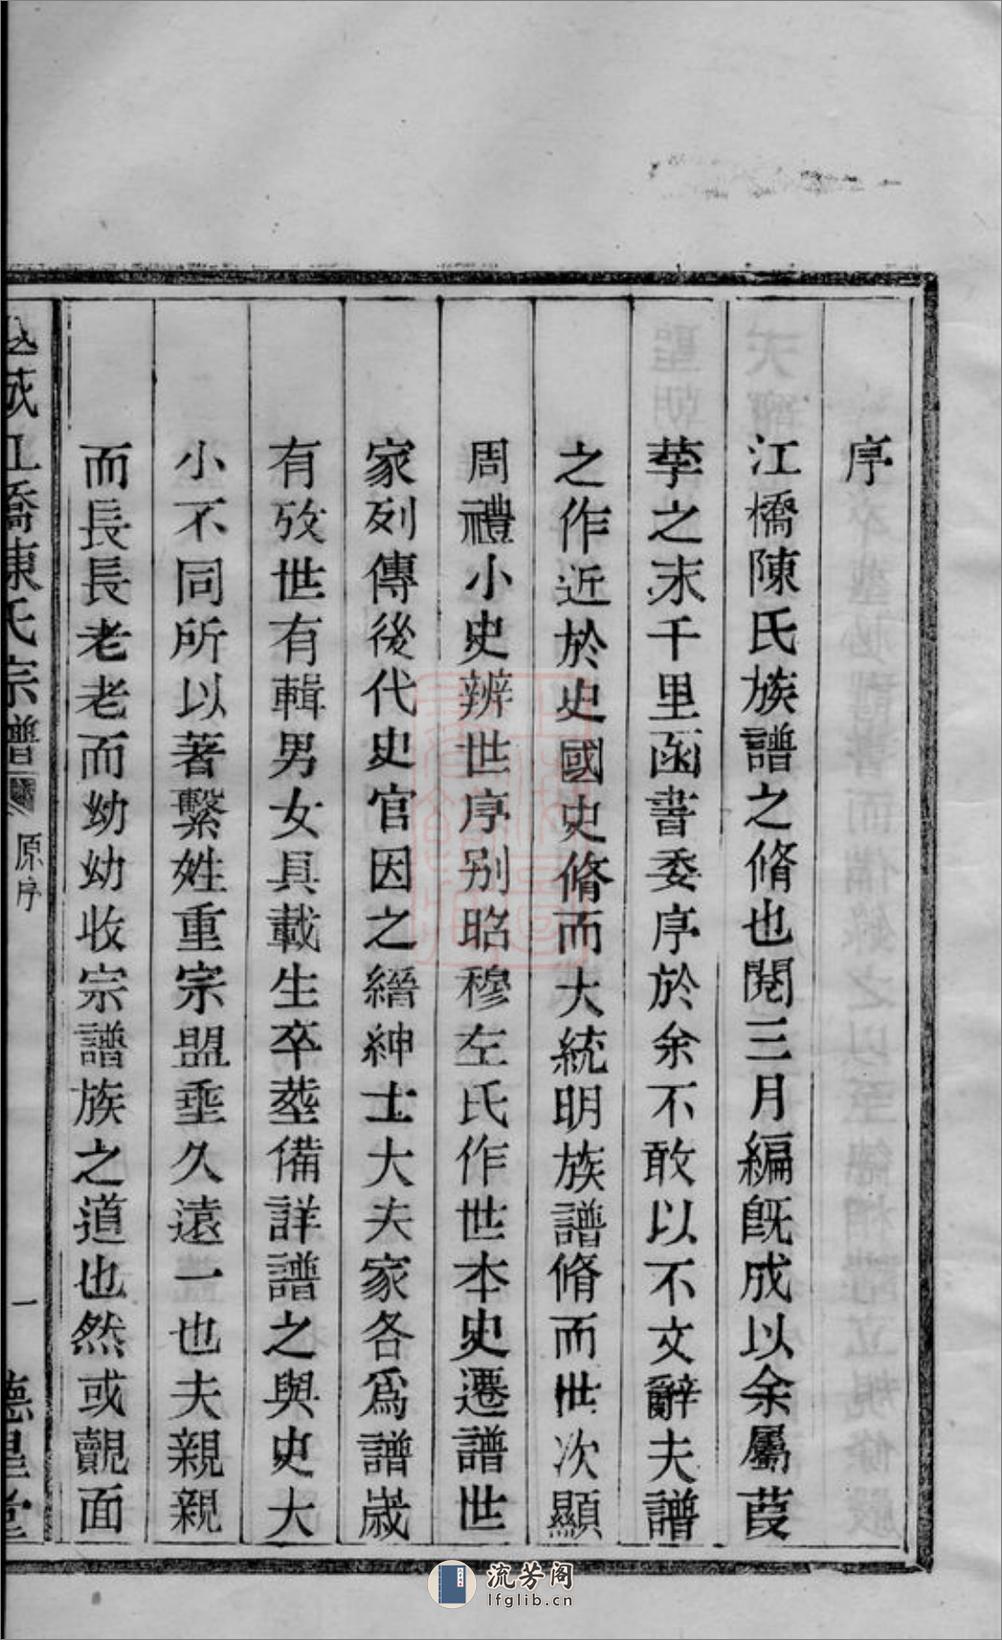 序
江橋陳氏族譜之脩也閱三月編旣成以余屬葭
莩之末千里函書委序於余不敢以不文辭夫譜
之作近於史國史脩而大統明族譜脩而世次顯
周禮小史辨世序别昭穆左氏作世本史遷譜世
家列傳後代史官因之縉紳士大夫家各爲譜嵗
有攷世有輯男女具載生卒塟備詳譜之與史大
小不同所以著繫姓重宗盟垂久遠一也夫親親
而長長老老而幼幼收宗譜族之道也然或靦面
江橋陳氏宗譜 原序 一 德星堂
流芳阁
lfglib.cn